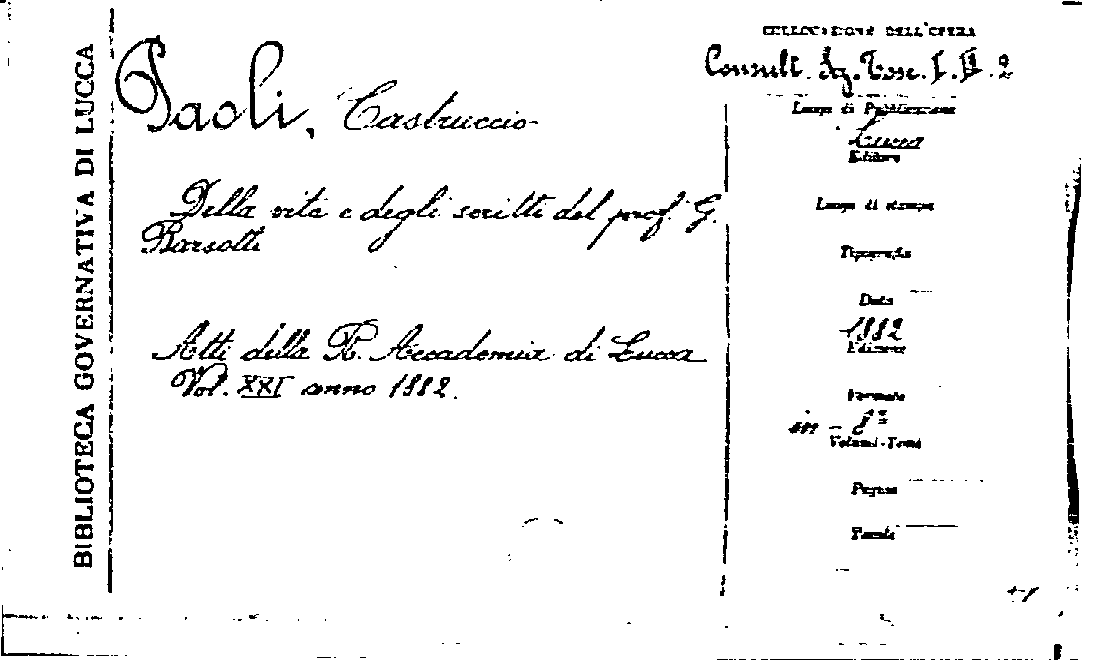 BIBLIOTECA GOVERNATIVA DI LUCCA
Paoli, Castruccio
Della vita e degli scritti del prof. G.
Barsotti
Atti della R. Accademia di Lucca
Vol. XXI anno 1882.
COLLOCAZIONE DELL'OPERA
Consult. Tosc. I. 2
Luogo di Pubblicazione
Lucca
Editore
Luogo di stampa
Tipografia
Data
1882
Edizione
Formato
in - 8º
Volumi-Tomi
Pagine
Tavole